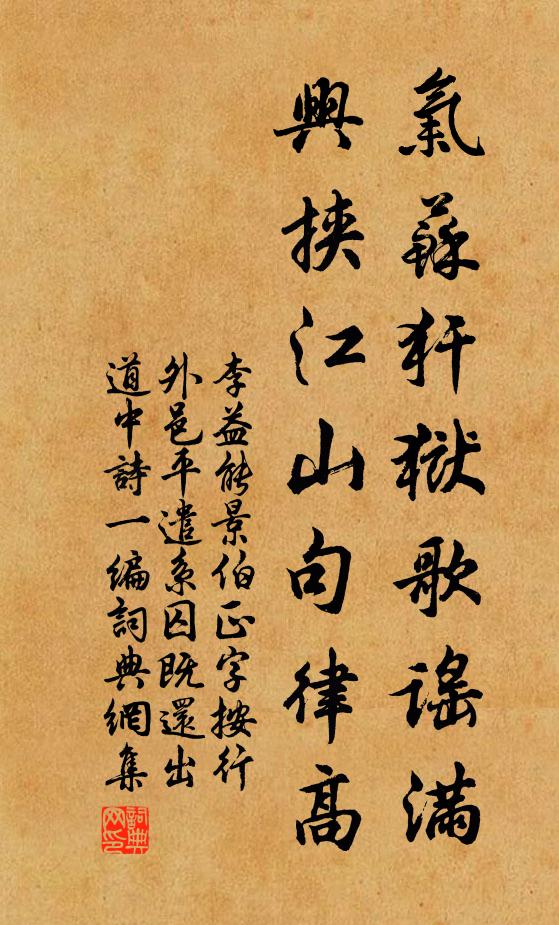 氣蘇犴獄歌謠滿
興挾江山句律高
李益能景伯正字按行
外邑平遣系囚既還出
道中詩一編詞典網集
詞典
网印